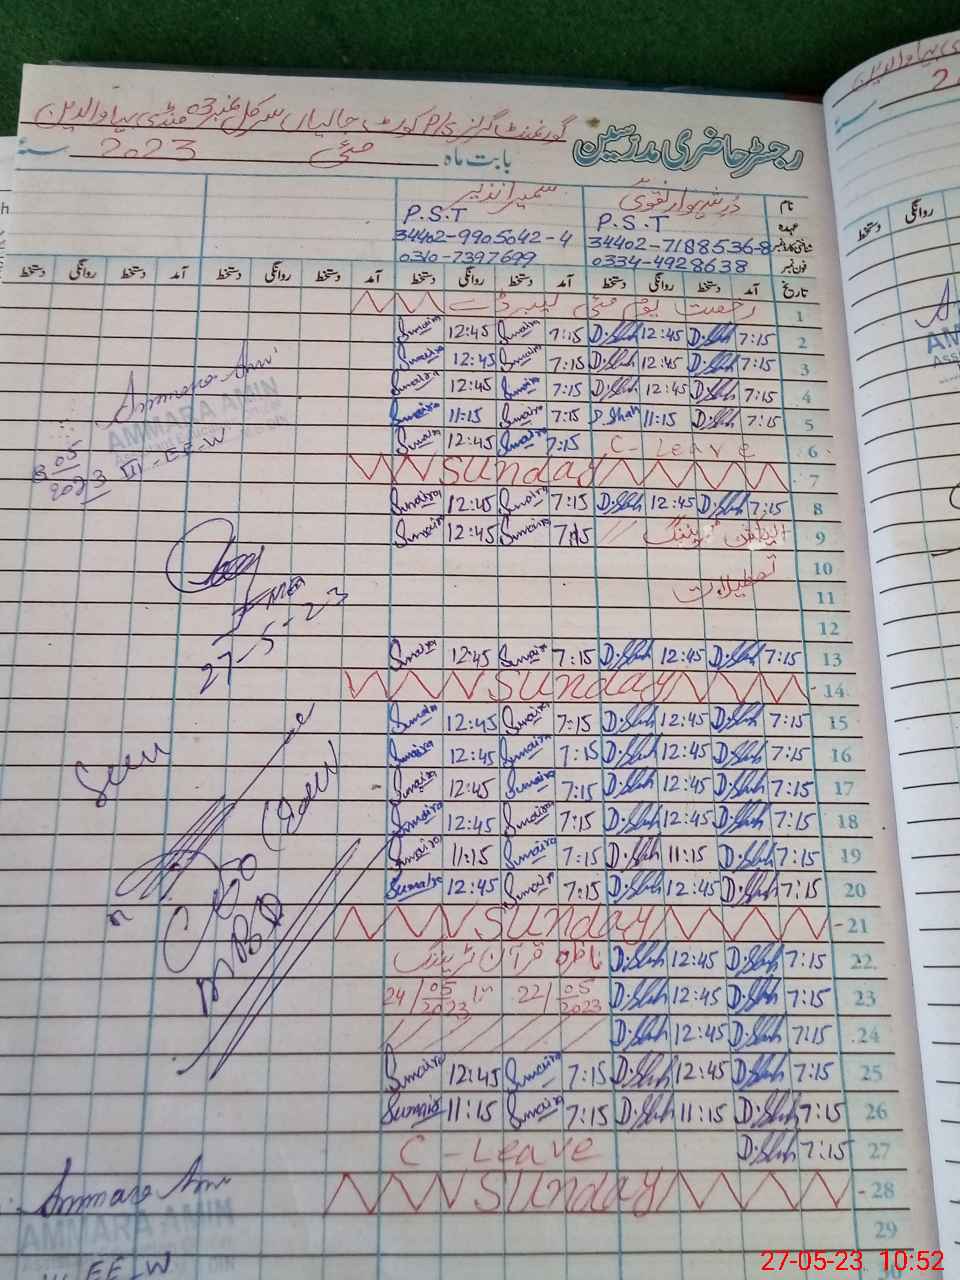 گورنمنٹ گرلز P/S کوٹ جالیاں سرکل نمبر 03 منڈی بہاؤالدین
رجسٹر حاضری مدرسین
بابت ماہ مئی 2023 سنہ
نام درشہوار نقوی سمیرا نذیر
عہدہ P.S.T P.S.T
34402-7188536-8 34402-9905042-4
فون نمبر 0334-4928638 0310-7397699
تاریخ آمد دستخط روانگی دستخط آمد دستخط روانگی دستخط آمد دستخط روانگی دستخط آمد دستخط روانگی دستخط
1 رخصت یوم مئی لیبر ڈے
2 7:15 D.Shah 12:45 D.Shah 7:15 Sumaira 12:45 Sumaira
3 7:15 D.Shah 12:45 D.Shah 7:15 Sumaira 12:45 Sumaira
4 7:15 D.Shah 12:45 D.Shah 7:15 Sumaira 12:45 Sumaira
5 7:15 D.Shah 11:15 D.Shah 7:15 Sumaira 11:15 Sumaira
6 C-Leave 7:15 Sumaira 12:45 Sumaira
7 Sunday
8 7:15 D.Shah 12:45 D.Shah 7:15 Sumaira 12:45 Sumaira
9 7:15 Sumaira 12:45 Sumaira
10
11 تعطیلات
12
13 7:15 D.Shah 12:45 D.Shah 7:15 Sumaira 12:45 Sumaira
14 Sunday
15 7:15 D.Shah 12:45 D.Shah 7:15 Sumaira 12:45 Sumaira
16 7:15 D.Shah 12:45 D.Shah 7:15 Sumaira 12:45 Sumaira
17 7:15 D.Shah 12:45 D.Shah 7:15 Sumaira 12:45 Sumaira
18 7:15 D.Shah 12:45 D.Shah 7:15 Sumaira 12:45 Sumaira
19 7:15 D.Shah 11:15 D.Shah 7:15 Sumaira 11:15 Sumaira
20 7:15 D.Shah 12:45 D.Shah 7:15 Sumaira 12:45 Sumaira
21 Sunday
22 7:15 D.Shah 12:45 D.Shah ناظرہ قرآن ٹریننگ
23 7:15 D.Shah 12:45 D.Shah 22/05/2023 تا 24/05/2023
24 7:15 D.Shah 12:45 D.Shah
25 7:15 D.Shah 12:45 D.Shah 7:15 Sumaira 12:45 Sumaira
26 7:15 D.Shah 11:15 D.Shah 7:15 Sumaira 11:15 Sumaira
27 7:15 D.Shah C-Leave
28 Sunday
29
Ammara Amin
AMMARA AMIN
8/05/2023 III-EE-W
27-5-23
Seen
CEO (DEA)
MBD
Ammara Amin
AMMARA AMIN
EE-W
روانگی
دستخط
27-05-23 10:52